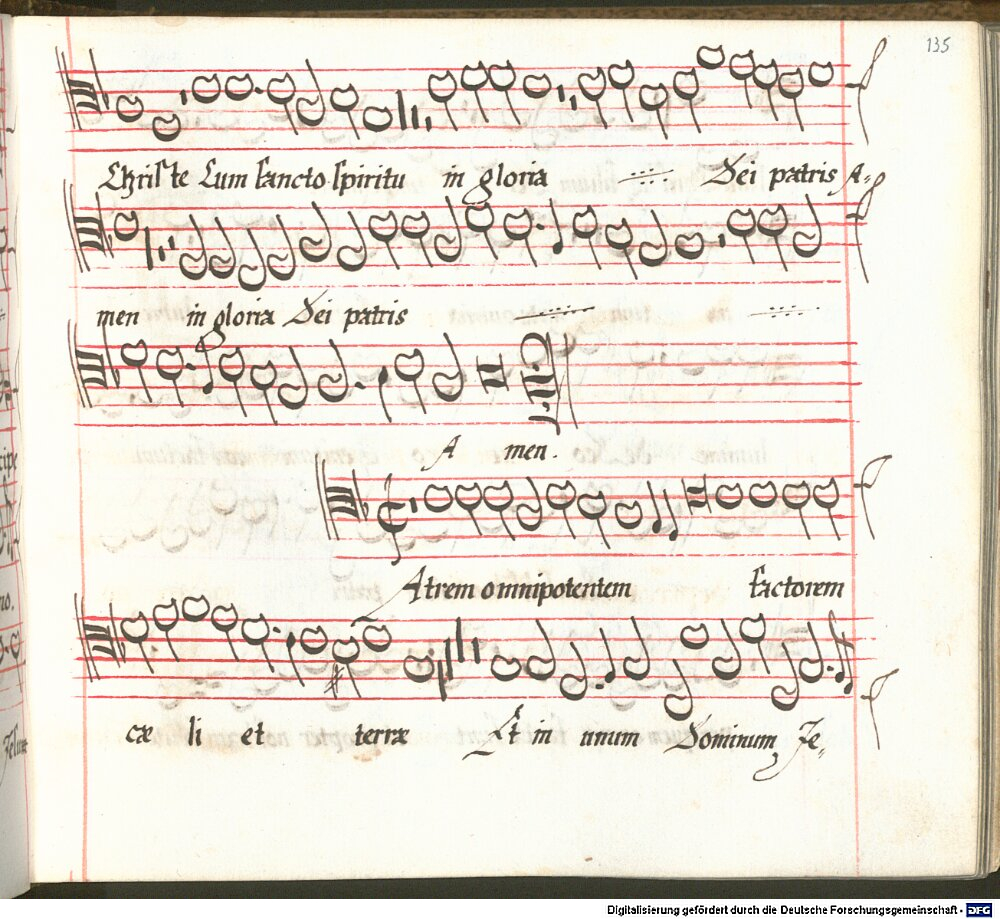 135
Christe Cum sancto spiritu in gloria Dei patris A-
men in gloria Dei patris
A men.
Atrem omnipotentem factorem
cæ li et terræ Et in unum Dominum Je-
Digitalisierung gefördert durch die Deutsche Forschungsgemeinschaft - DFG